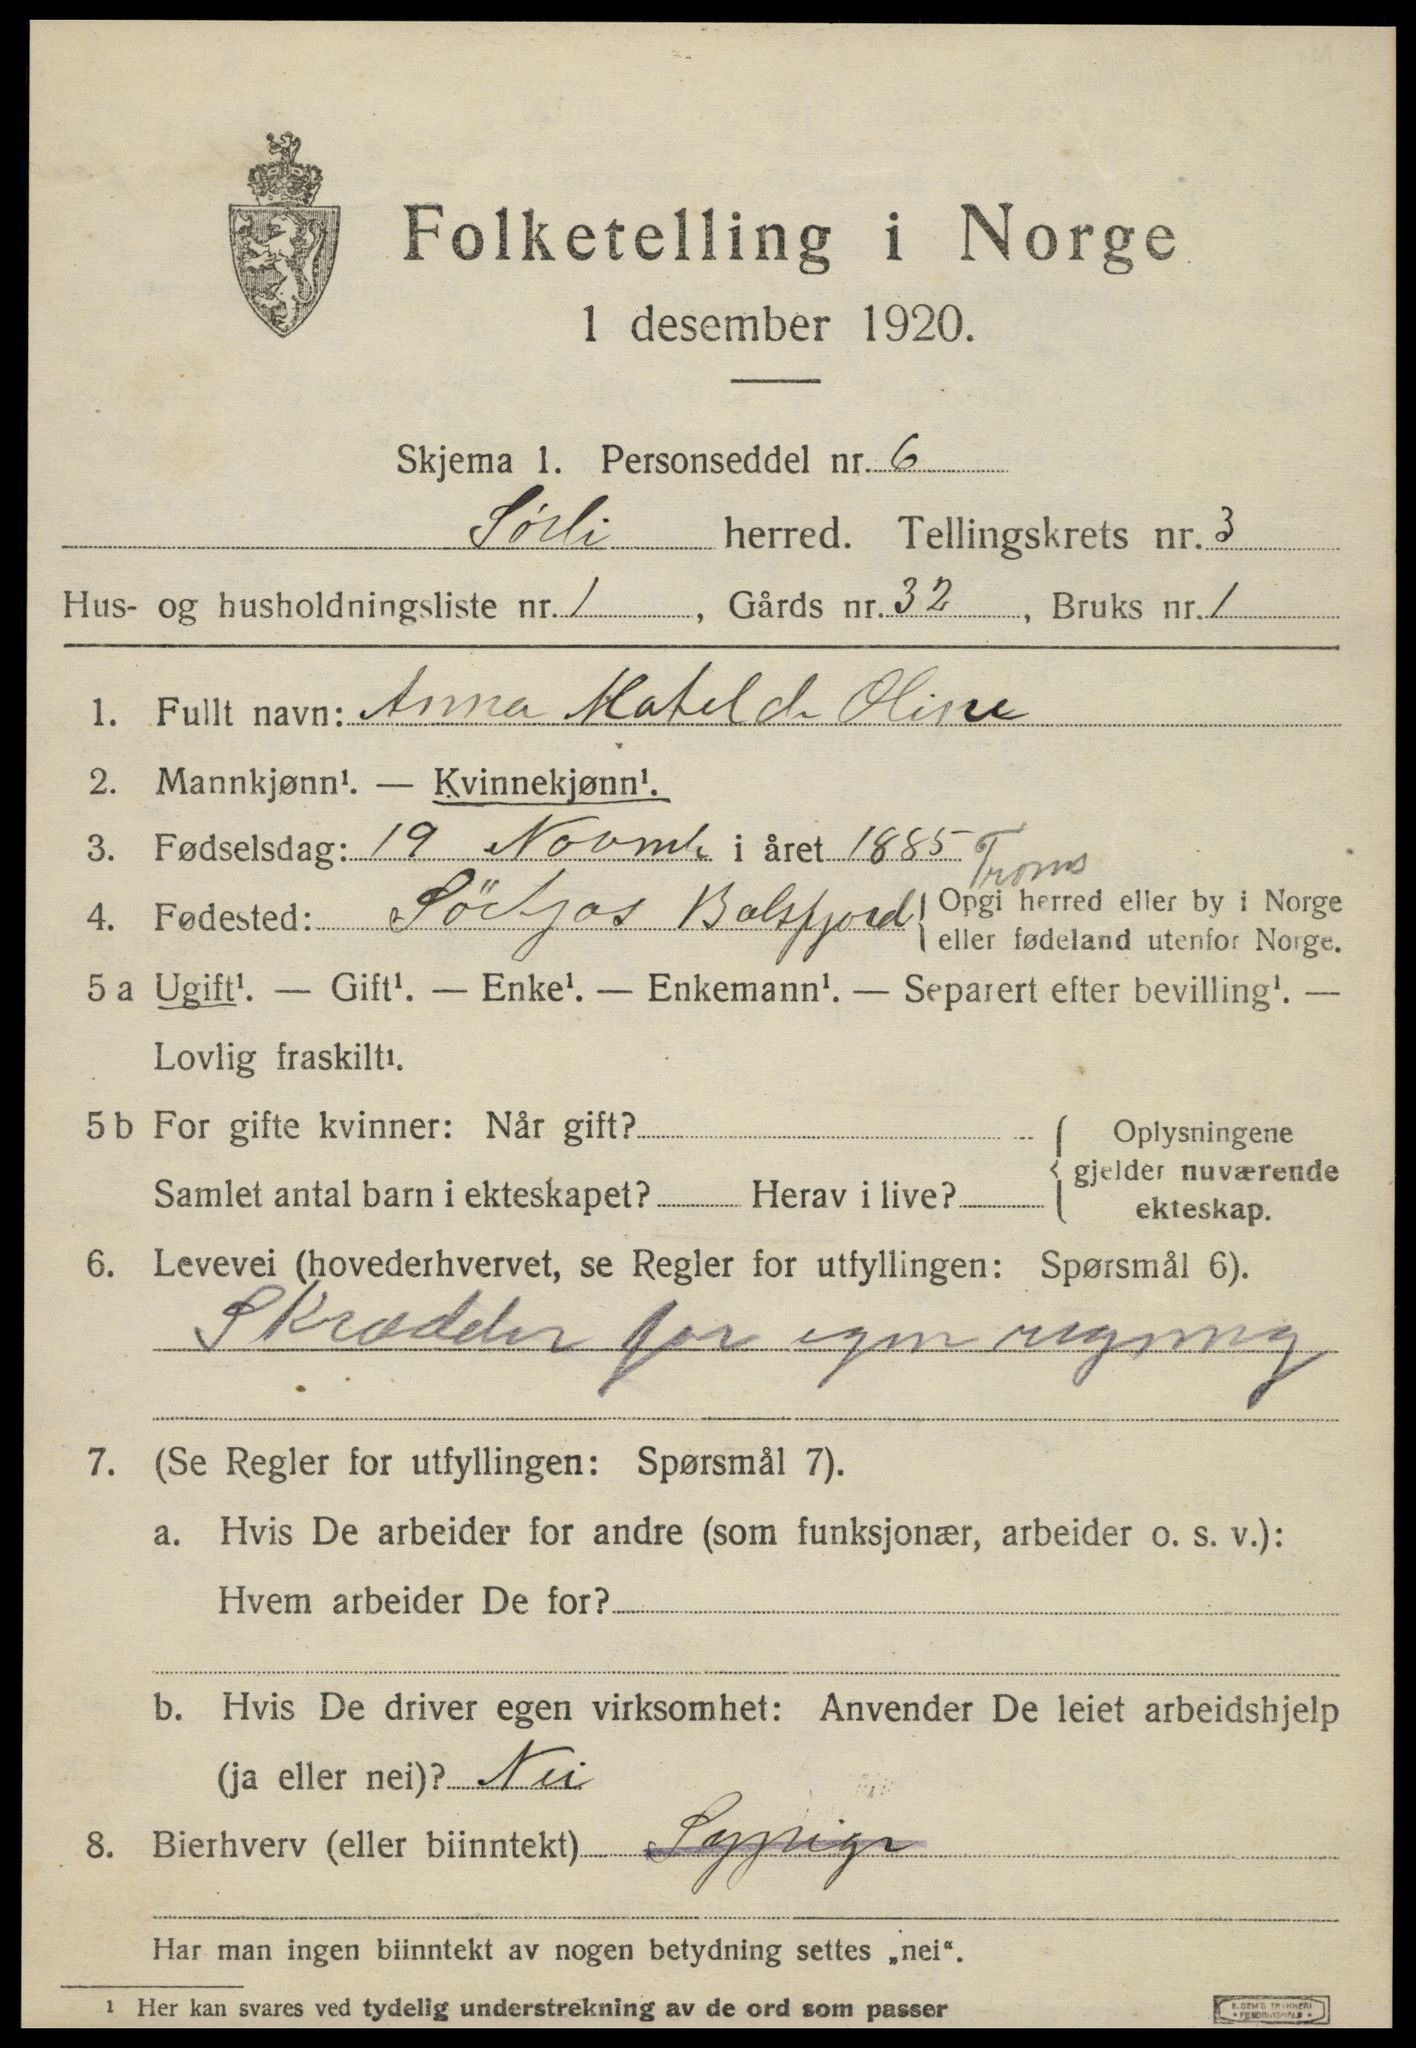 Folketelling i Norge
1 desember 1920.
Skjema 1. Personseddel nr. 6
Sørli herred. Tellingskrets nr. 3
Hus- og husholdningsliste nr. 1, Gårds nr. 32, Bruks nr. 1
1. Fullt navn: Anna Matelde Oline
2. Mannkjønn¹. — Kvinnekjønn¹.
3. Fødselsdag: 19 Novmb i året 1885
Troms
4. Fødested: Balsfjord { Opgi herred eller by i Norge
eller fødeland utenfor Norge.
5 a Ugift¹. — Gift¹. — Enke¹. — Enkemann¹. — Separert efter bevilling¹. —
Lovlig fraskilt¹.
5 b For gifte kvinner: Når gift?
Samlet antal barn i ekteskapet? Herav i live?
{ Oplysningene
gjelder nuværende
ekteskap.
6. Levevei (hovederhvervet, se Regler for utfyllingen: Spørsmål 6).
Skrædder for egen regning
7. (Se Regler for utfyllingen: Spørsmål 7).
a. Hvis De arbeider for andre (som funksjonær, arbeider o. s. v.):
Hvem arbeider De for?
b. Hvis De driver egen virksomhet: Anvender De leiet arbeidshjelp
(ja eller nei)? Nei
8. Bierhverv (eller biinntekt)
Har man ingen biinntekt av nogen betydning settes „nei“.
¹ Her kan svares ved tydelig understrekning av de ord som passer